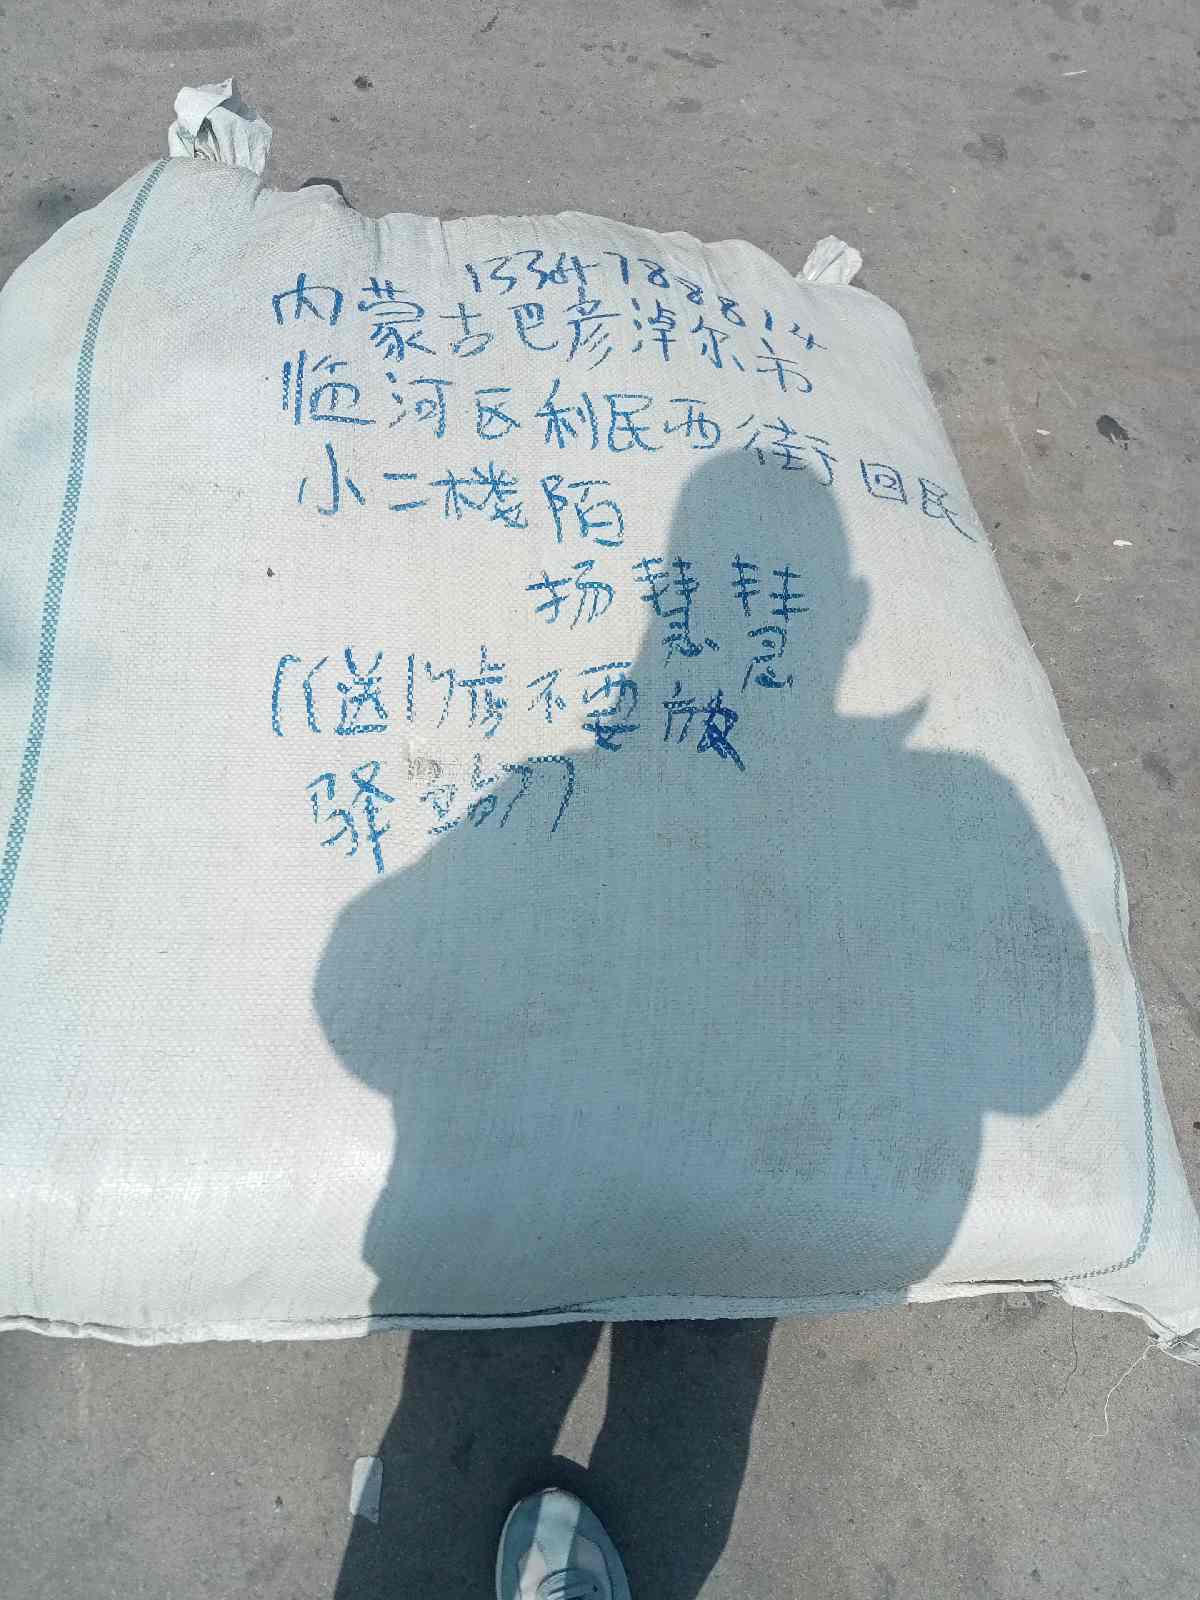 13347888814
内蒙古巴彦淖尔市
临河区利民西街回民
小二楼陌
扬慧慧
((送门旁不要放
驿站))